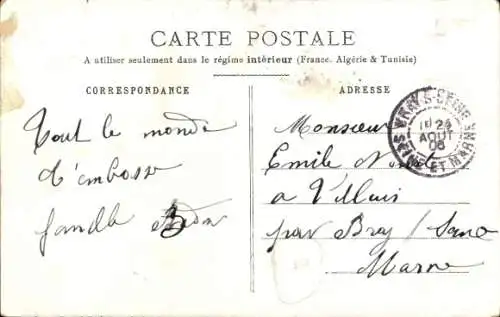 CARTE POSTALE
A utiliser seulement dans le régime intérieur (France, Algérie & Tunisie)
CORRESPONDANCE
Tout le monde
t'embrasse
famille
ADRESSE
Monsieur
Emile
a Villuis
par Bray / Seine
Marne
BRAY-S-SEINE
24
AOUT
06
SEINE-ET-MARNE